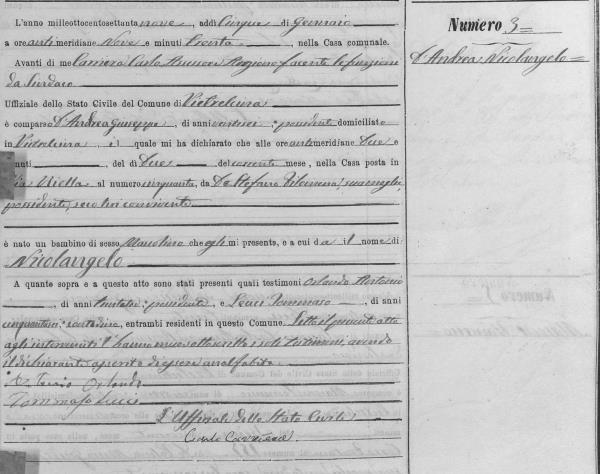 Numero 3
D'Andrea Nicolangelo
L'anno milleottocentosettanta nove, addì Cinque di Gennaio
a ore anti meridiane Nove e minuti trenta, nella Casa comunale.
Avanti di me Carlo facente le funzioni
da Sindaco
Uffiziale dello Stato Civile del Comune di
è comparso D'Andrea Giuseppe, di anni, possidente domiciliato
in, il quale mi ha dichiarato che alle ore anti meridiane Due e
nuti, del dì Due del corrente mese, nella Casa posta in
al numero cinquanta, da De Stefano Filomena, sua moglie,
possidente, seco lui convivente
è nato un bambino di sesso Mascolino che egli mi presenta, e a cui dà il nome di
Nicolangelo
A quanto sopra e a questo atto sono stati presenti quali testimoni Orlando Antonio
, di anni, possidente, e Tommaso, di anni
, contadino, entrambi residenti in questo Comune. Letto il presente atto
agli intervenuti l'hanno meco sottoscritto i soli testimoni, avendo
il dichiarante asserito di essere analfabeta.
Antonio Orlando
Tommaso
L'Uffiziale dello Stato Civile
Carlo